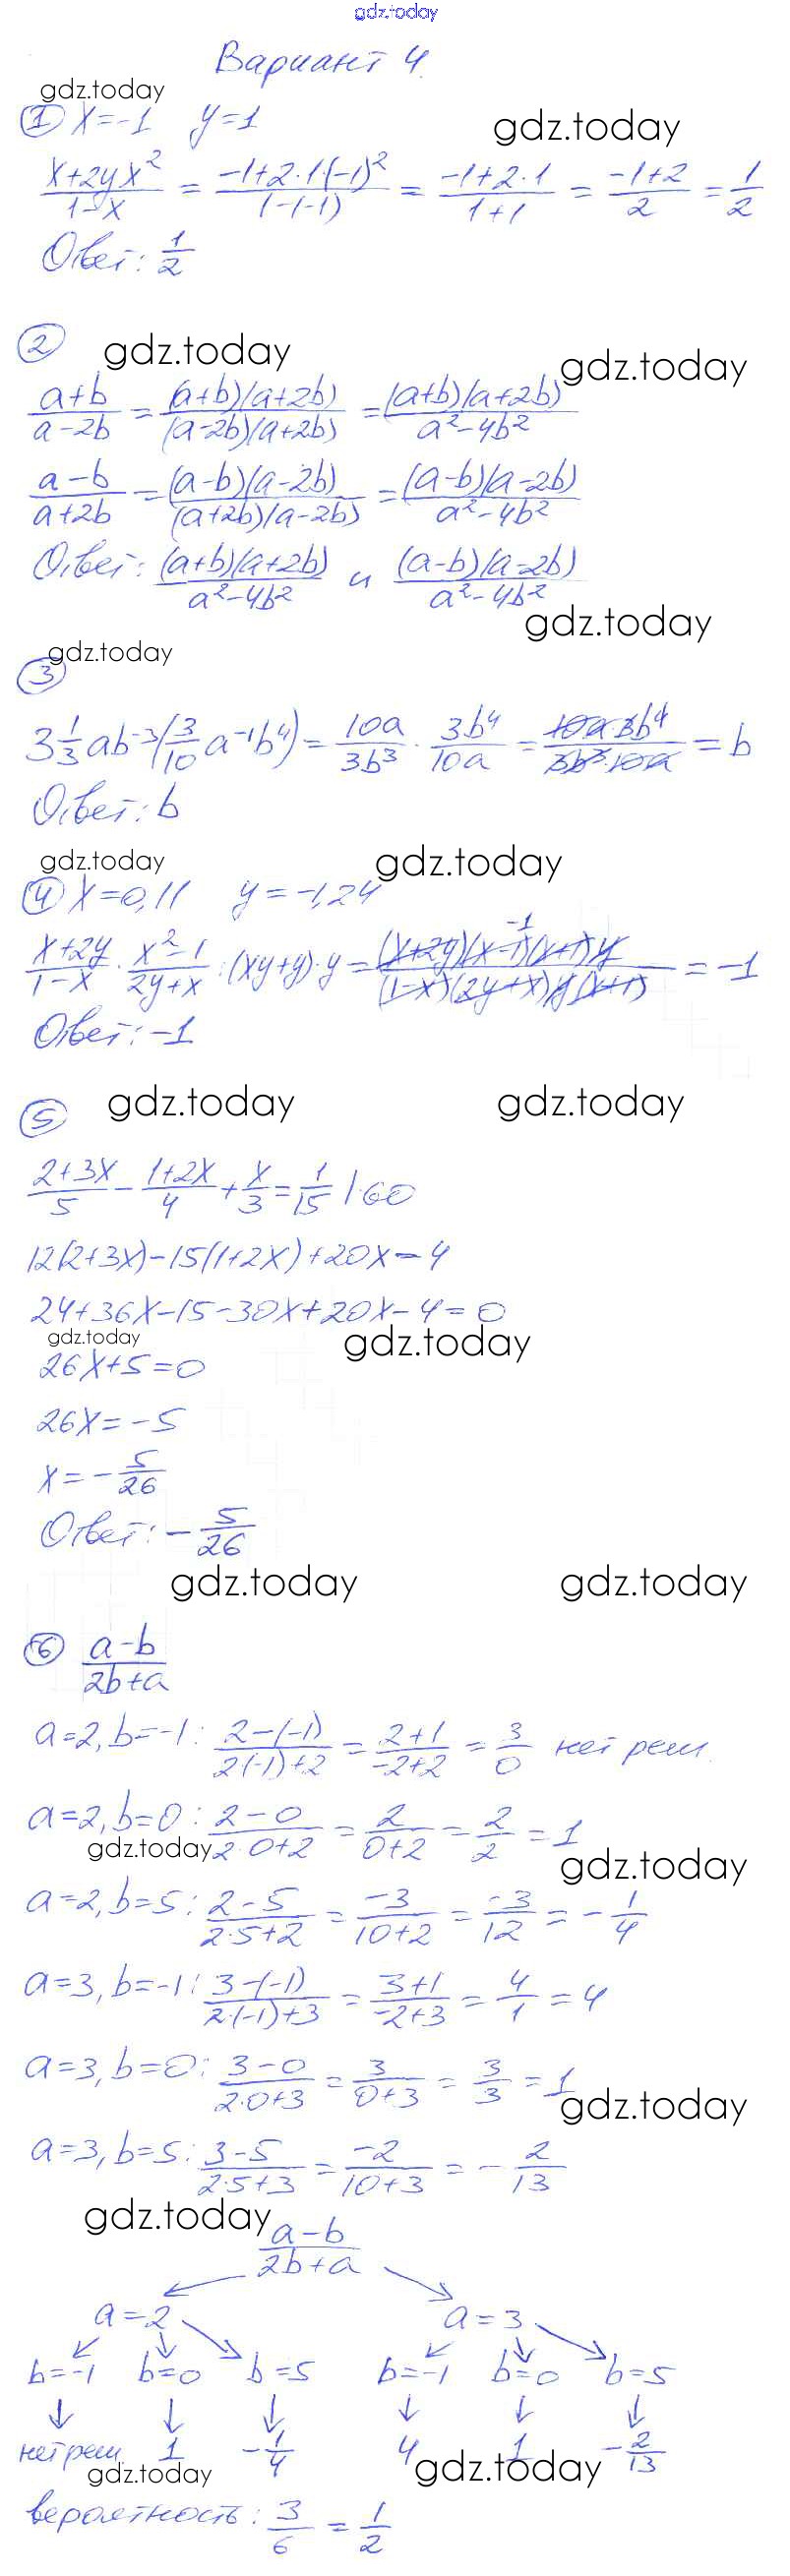 gdz.today
Вариант 4.
gdz.today
① x=-1 y=1
gdz.today
(x+2yx²)/(1-x) = (-1+2·1(-1)²)/(1-(-1)) = (-1+2·1)/(1+1) = (-1+2)/2 = 1/2
Ответ: 1/2
②
gdz.today
gdz.today
(a+b)/(a-2b) = ((a+b)(a+2b))/((a-2b)(a+2b)) = ((a+b)(a+2b))/(a²-4b²)
(a-b)/(a+2b) = ((a-b)(a-2b))/((a+2b)(a-2b)) = ((a-b)(a-2b))/(a²-4b²)
Ответ: ((a+b)(a+2b))/(a²-4b²) и ((a-b)(a-2b))/(a²-4b²)
gdz.today
gdz.today
③
3 1/3 ab⁻³(3/10 a⁻¹b⁴) = 10a/3b³ · 3b⁴/10a = (10a·3b⁴)/(3b³·10a) = b
Ответ: b
gdz.today
gdz.today
④ x=0,11 y=-1,24
(x+2y)/(1-x) · (x²-1)/(2y+x) : (xy+y)·y = ((x+2y)(x-1)(x+1)y)/((1-x)(2y+x)y(x+1)) = -1
-1
Ответ: -1
⑤
gdz.today
gdz.today
(2+3x)/5 - (1+2x)/4 + x/3 = 1/15 |·60
12(2+3x)-15(1+2x)+20x=4
24+36x-15-30x+20x-4=0
gdz.today
gdz.today
26x+5=0
26x=-5
x=-5/26
Ответ: -5/26
gdz.today
gdz.today
⑥ (a-b)/(2b+a)
a=2, b=-1: (2-(-1))/(2(-1)+2) = (2+1)/(-2+2) = 3/0 нет реш.
a=2, b=0: (2-0)/(2·0+2) = 2/(0+2) = 2/2 = 1
gdz.today
gdz.today
a=2, b=5: (2-5)/(2·5+2) = -3/(10+2) = -3/12 = -1/4
a=3, b=-1: (3-(-1))/(2·(-1)+3) = (3+1)/(-2+3) = 4/1 = 4
a=3, b=0: (3-0)/(2·0+3) = 3/(0+3) = 3/3 = 1
gdz.today
a=3, b=5: (3-5)/(2·5+3) = -2/(10+3) = -2/13
gdz.today
(a-b)/(2b+a)
a=2 a=3
b=-1 b=0 b=5 b=-1 b=0 b=5
нет реш. 1 -1/4 4 1 -2/13
gdz.today
gdz.today
вероятность: 3/6 = 1/2